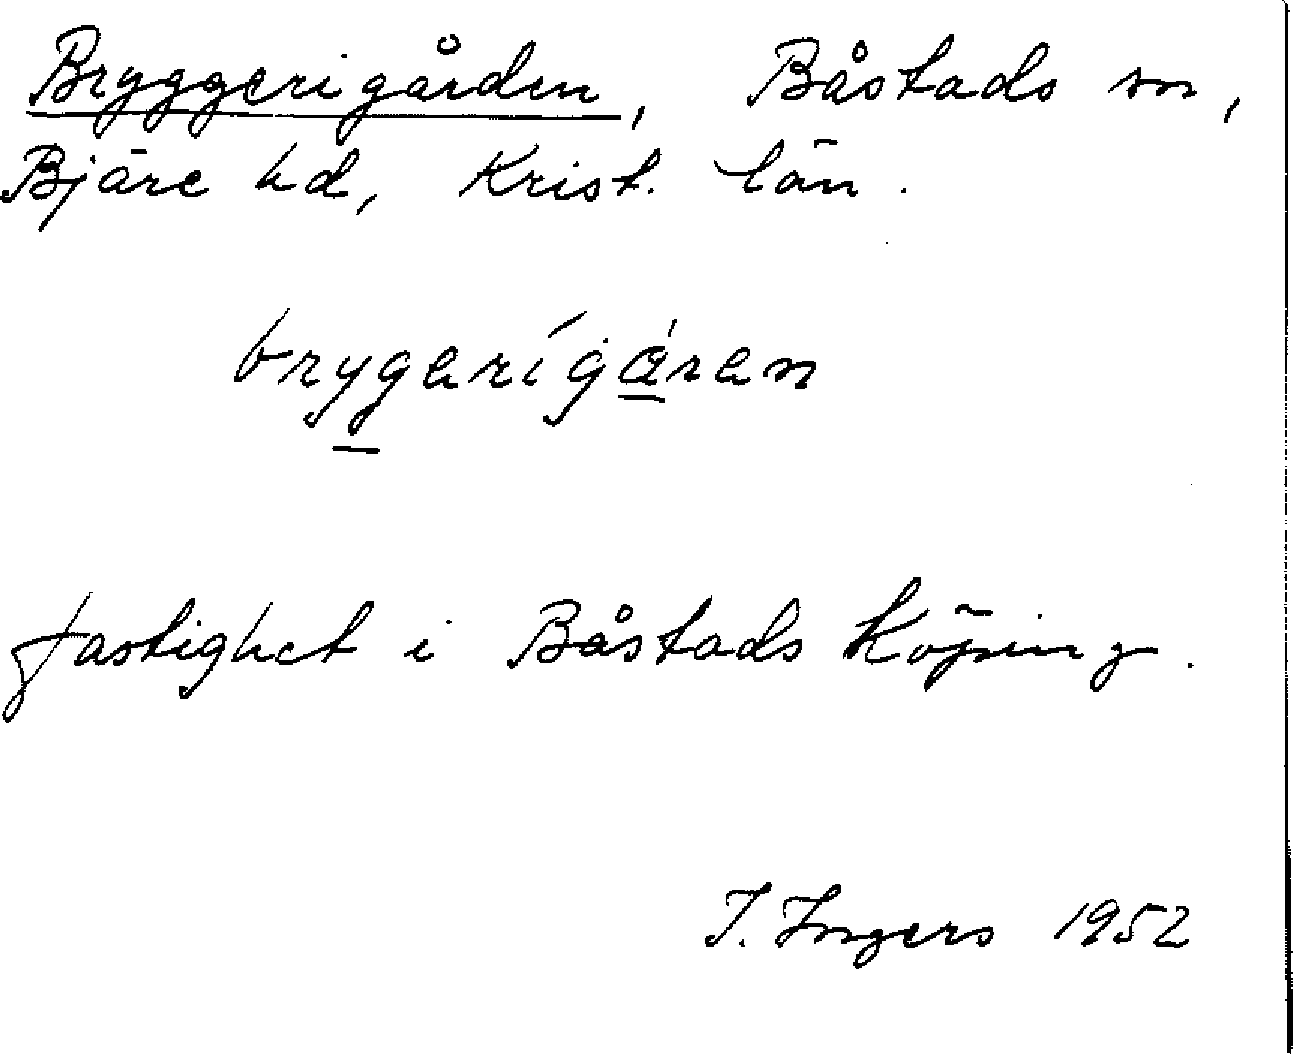 Bryggerigården, Båstads sn,
Bjäre hd, Krist. län.
brygarígáran
fastighet i Båstads köping.
I. Ingers 1952